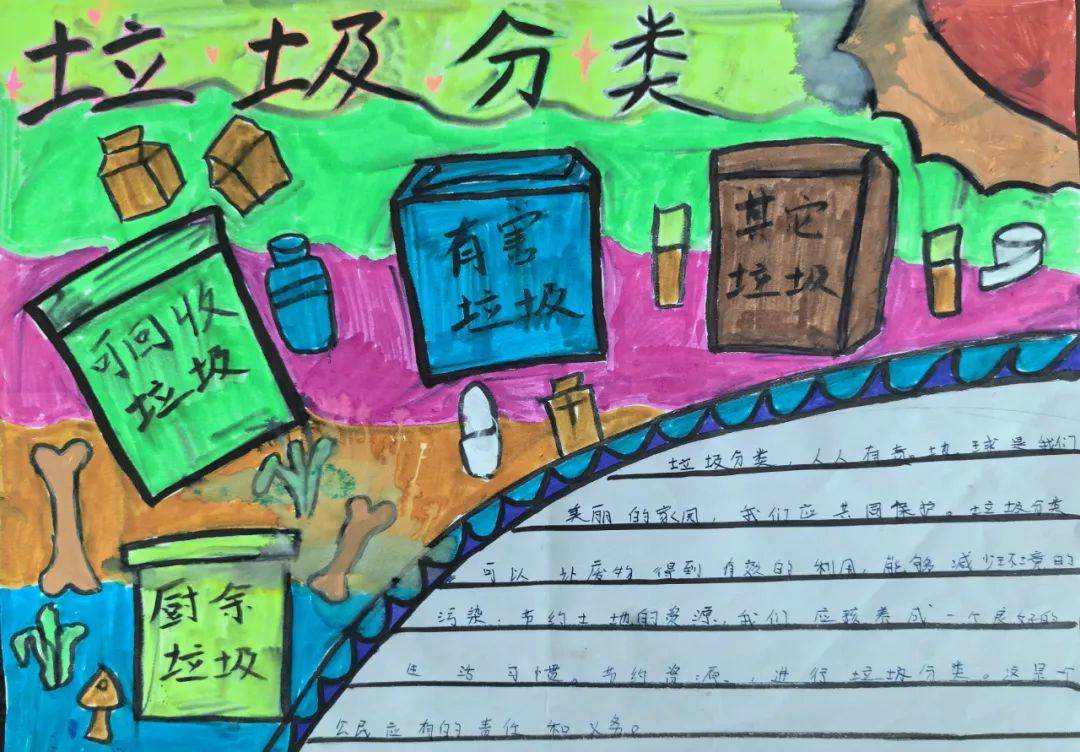 垃圾分类
有害
垃圾
其它
垃圾
可回收
垃圾
厨余
垃圾
垃圾分类,人人有责。地球是我们
美丽的家园,我们应共同保护。垃圾分类
可以让废物得到有效的利用,能够减少环境的
污染.节约土地的资源.我们应该养成一个良好的
生活习惯。节约资源.,进行垃圾分类。这是一个
公民应有的责任和义务。